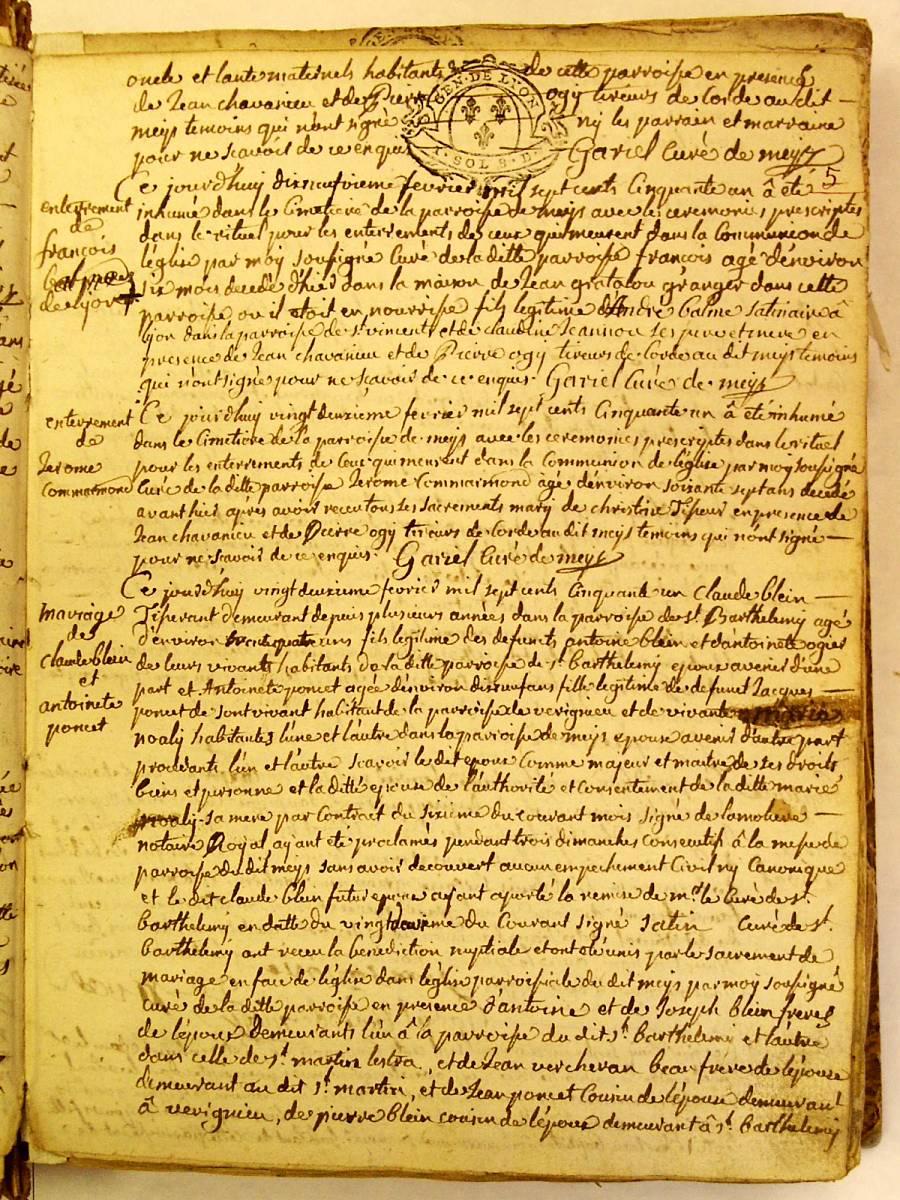 oncle et tante maternels habitants de cette parroisse en presence
de Jean chavanieu et de Pierre ogy tireurs de corde au dit
meys temoins qui n'ont signé ny les parrain et marraine
pour ne scavoir de ce enquis Gariel Curé de meys
GEN. DE LYON
SOLS. D.
5
Ce jourdhuy dixneufvieme fevrier mil sept cents Cinquante un â été
inhumé dans le Cimetiere de la parroisse de meys avec les ceremonies prescriptes
dans le rituel pour les enterrements de ceux qui meurent dans la Communion de
l'église par moy soussigné Curé de la ditte parroisse françois agé d'environ
six mois decedé d'hier dans la maison de Jean gratalou granger dans cette
parroisse ou il étoit en nourrisse fils legitime d'Andre balme satinaire â
lyon dans la parroisse de st. vincent et de claudine Jeannou ses pere et mere en
presence de Jean chavanieu et de Pierre ogy tireurs de Corde au dit meys temoins
qui n'ont signé pour ne scavoir de ce enquis. Gariel Curé de meys
enterrement
de
françois
de lyon
Ce jourdhuy vingt deuxieme fevrier mil sept cents Cinquante un â été inhumé
dans le Cimetiere de la parroisse de meys avec les ceremonies prescriptes dans le rituel
pour les enterrements de Ceux qui meurent dans la Communion de l'église par moy soussigné
Curé de la ditte parroisse Jerome Commarmond agé d'environ soixante sept ans decedé
avant hier apres avoir receu tous les sacrements mary de christine Tisseur en presence de
Jean chavanieu et de Pierre ogy tireurs de Corde au dit meys temoins qui n'ont signé
pour ne scavoir de ce enquis. Gariel Curé de meys
enterrement
de
Jerome
Commarmond
Ce jourdhuy vingt deuxieme fevrier mil sept cents Cinquante un Claude blein
Tisserant demeurant depuis plusieurs années dans la parroisse de st. Barthelemy agé
d'environ trente quatre ans fils legitime des defunts antoine blein et d'antoinete ogier
de leurs vivants habitants de la ditte parroisse de st. barthelemy epoux avenir d'une
part et Antoinete poncet agée d'environ dixneuf ans fille legitime de defunct Jacques
poncet de son vivant habitant de la parroisse de verignieu et de vivante marie
noaly habitantes lune et l'autre dans la parroisse de meys epouse avenir d'autre part
procedants l'un et l'autre scavoir le dit epoux comme majeur et maitre de ses droits
biens et personne et la ditte epouse de l'authorité et consentement de la ditte marie
noaly sa mere par Contract du sixieme du courant mois signé delamoliere
notaire Royal ayant eté proclamés pendant trois dimanches consecutifs â la messe de
parroisse du dit meys sans avoir decouvert aucun empechement Civil ny Canonique
et le dit claude blein futur epoux ayant aporté la remise de mr. le Curé de st.
barthelemy en datte du vingt du Courant signé Curé de st.
barthelemy ont receu la benediction nuptiale et ont eté unis par le sacrement de
mariage en face de l'église dans l'église parroissiale du dit meys par moy soussigné
curé de la ditte parroisse en presence d'antoine et de Joseph blein freres
de l'époux demeurants l'un â la parroisse du dit st. barthelemi et l'autre
dans celle de st. martin lestra, et de Jean vercheran beau frere de l'épouse
demeurant au dit st. martin, et de Jean poncet Cousin de l'épouse demeurant
â verignieu, de pierre blein cousin de l'époux demeurant â st. barthelemy
mariage
de
Claude blein
et
antoinete
poncet